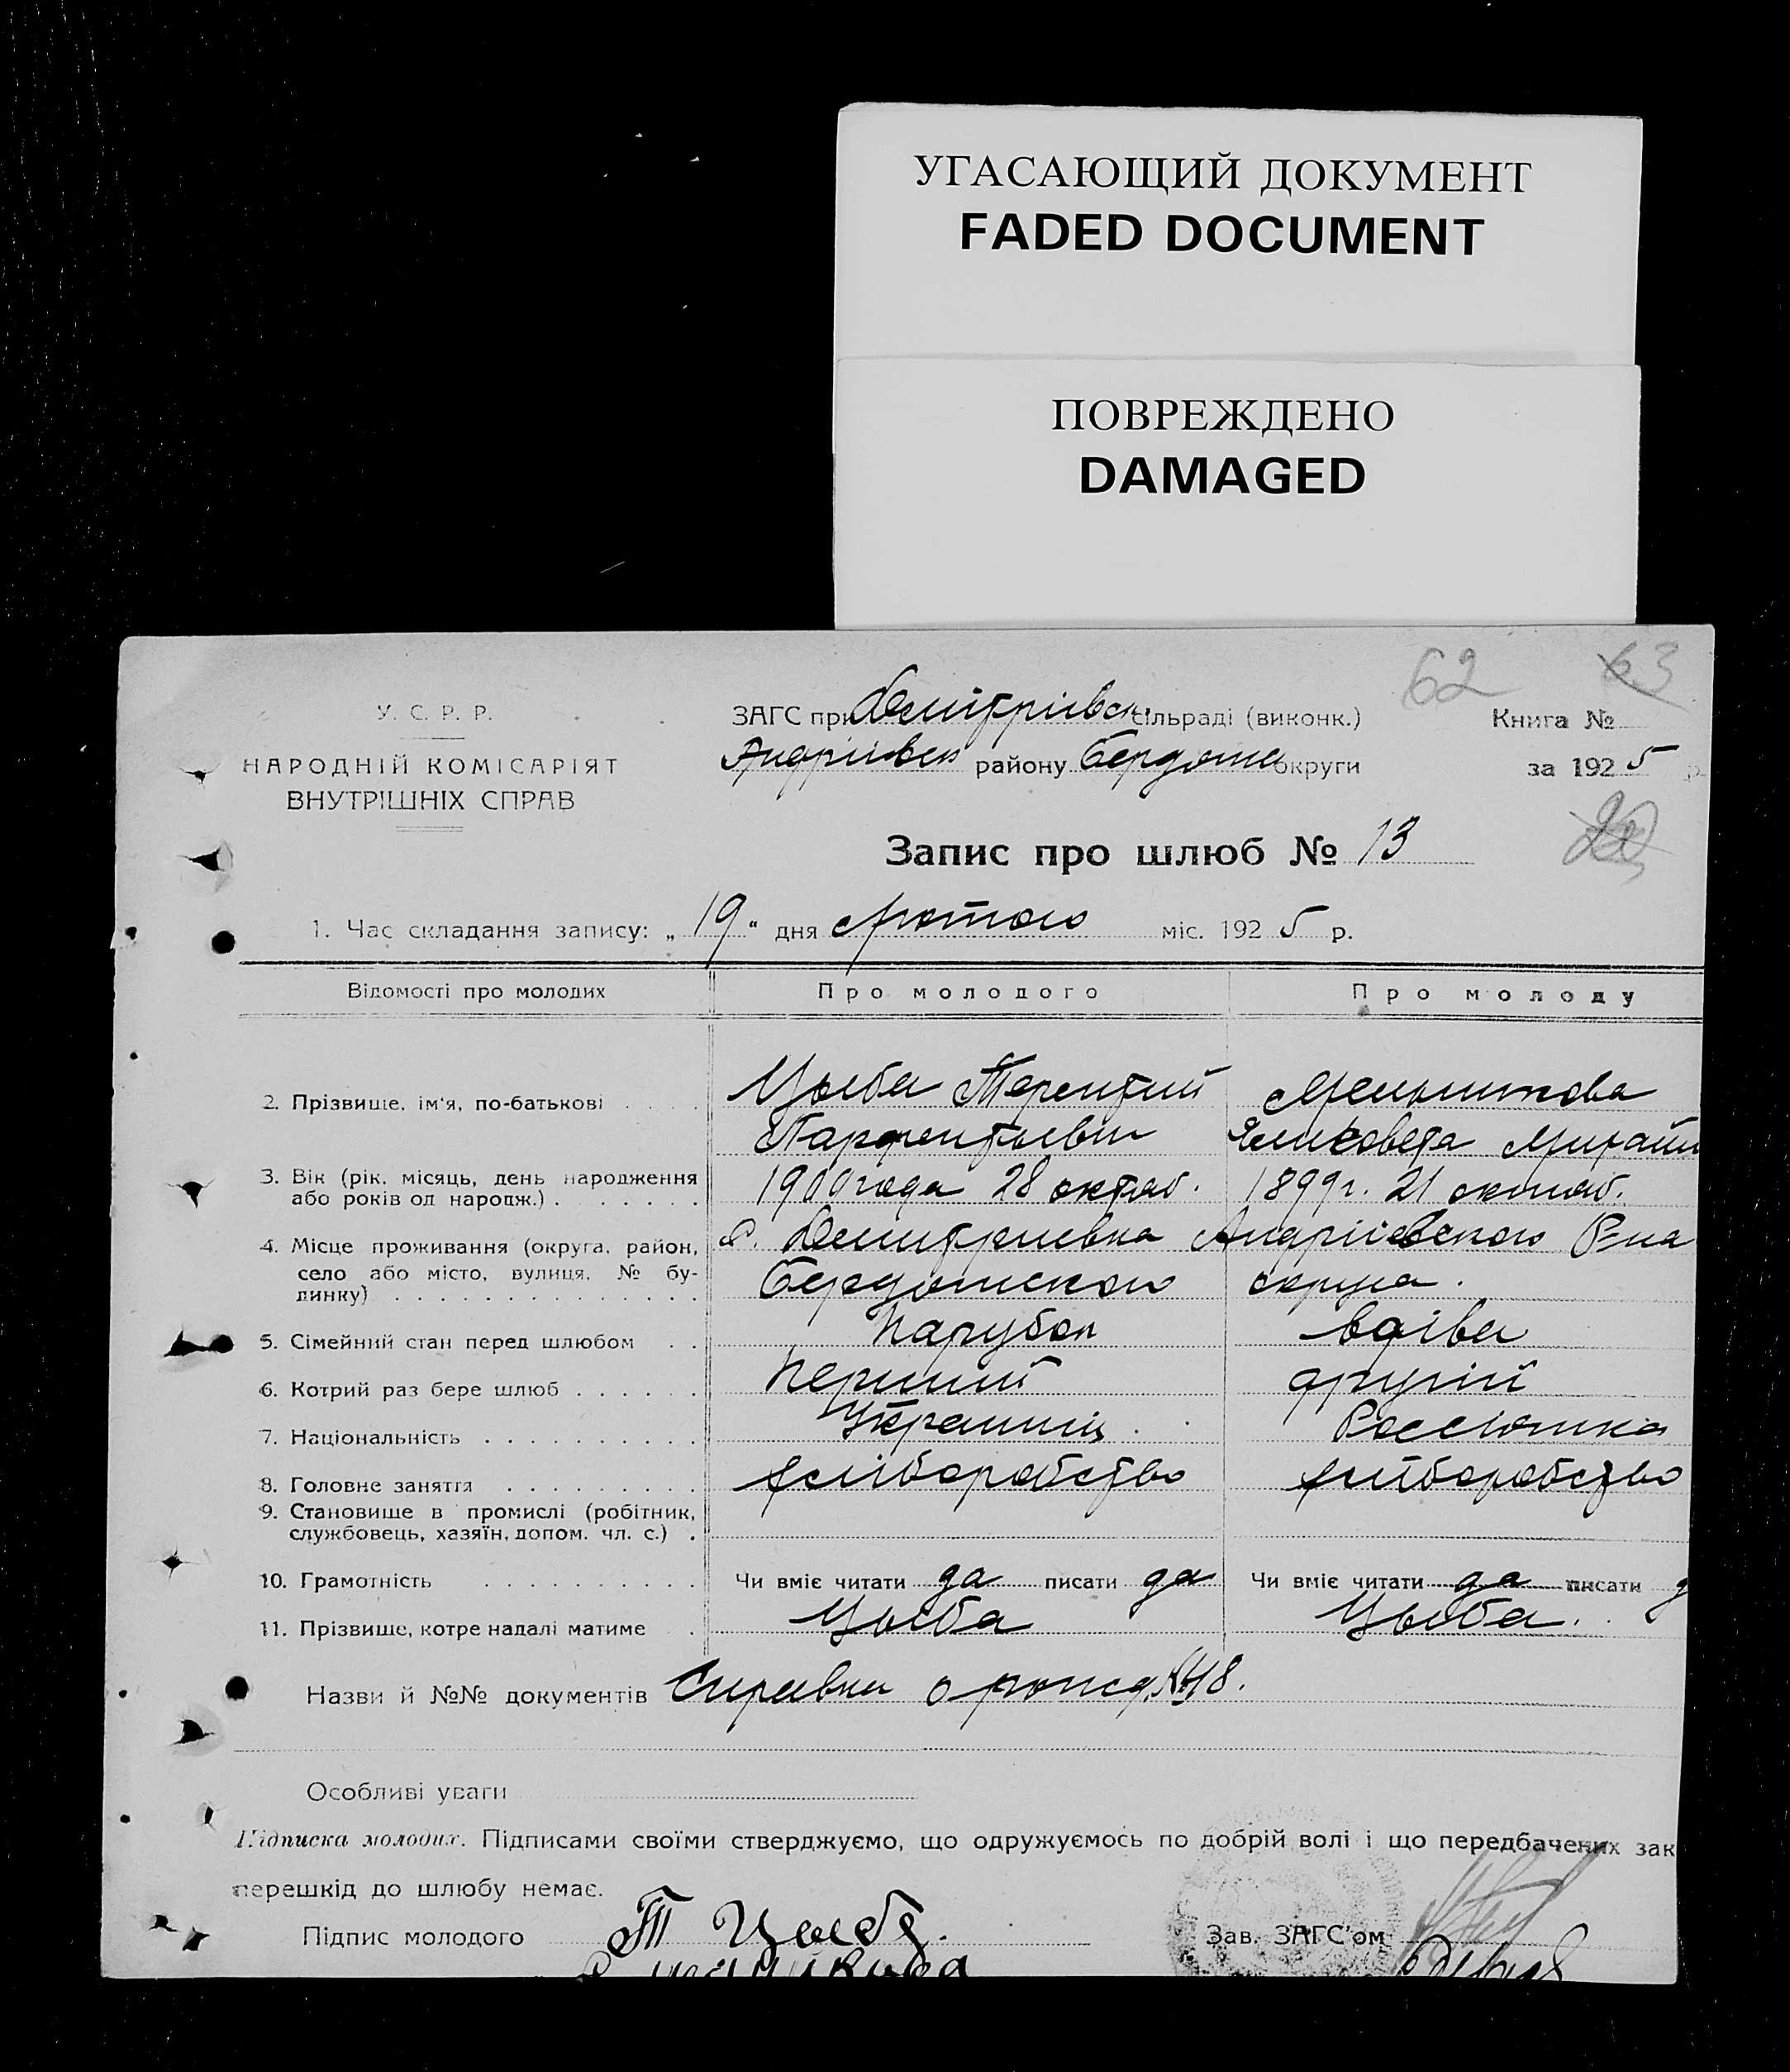 УГАСАЮЩИЙ ДОКУМЕНТ
FADED DOCUMENT
ПОВРЕЖДЕНО
DAMAGED
62 63
У. С. Р. Р.
НАРОДНІЙ КОМІСАРІЯТ
ВНУТРІШНІХ СПРАВ
ЗАГС при Демітріівск. сільраді (виконк.)
Андріівск району Бердянс округи
Книга №
за 1925 р.
Запис про шлюб № 13
1. Час складання запису: „19“ дня Лютого міс. 1925 р.
Відомості про молодих Про молодого Про молоду
2. Прізвище, ім'я, по-батькові . . . . Цыба Терентий
Парфентьевич Елисовета Михайл
3. Вік (рік, місяць, день народження
або років од народж.) . . . . . . 1900 года 28 октяб. 1899 г. 21 октяб.
4. Місце проживання (округа, район,
село або місто, вулиця, № бу-
динку) . . . . . . . . . . . . . . с. Демитриевка Андріівского Р-на
Бердянского округа.
5. Сімейний стан перед шлюбом . . Парубок вдівва
6. Котрий раз бере шлюб . . . . . . Перший другий
7. Національність . . . . . . . . . . Украинец Россіянка
8. Головне заняття . . . . . . . . . хліборобство хліборобство
9. Становище в промислі (робітник,
службовець, хазяїн, допом. чл. с.) .
10. Грамотність . . . . . . . . . . Чи вміє читати да писати да Чи вміє читати да писати д
11. Прізвище, котре надалі матиме . Цыба Цыба.
Назви й №№ документів Справка о рожд. №48.
Особливі уваги
Підписка молодих. Підписами своїми стверджуємо, що одружуємось по добрій волі і що передбачених зак
перешкід до шлюбу немає.
Підпис молодого Т Цыба. Зав. ЗАГС'ом